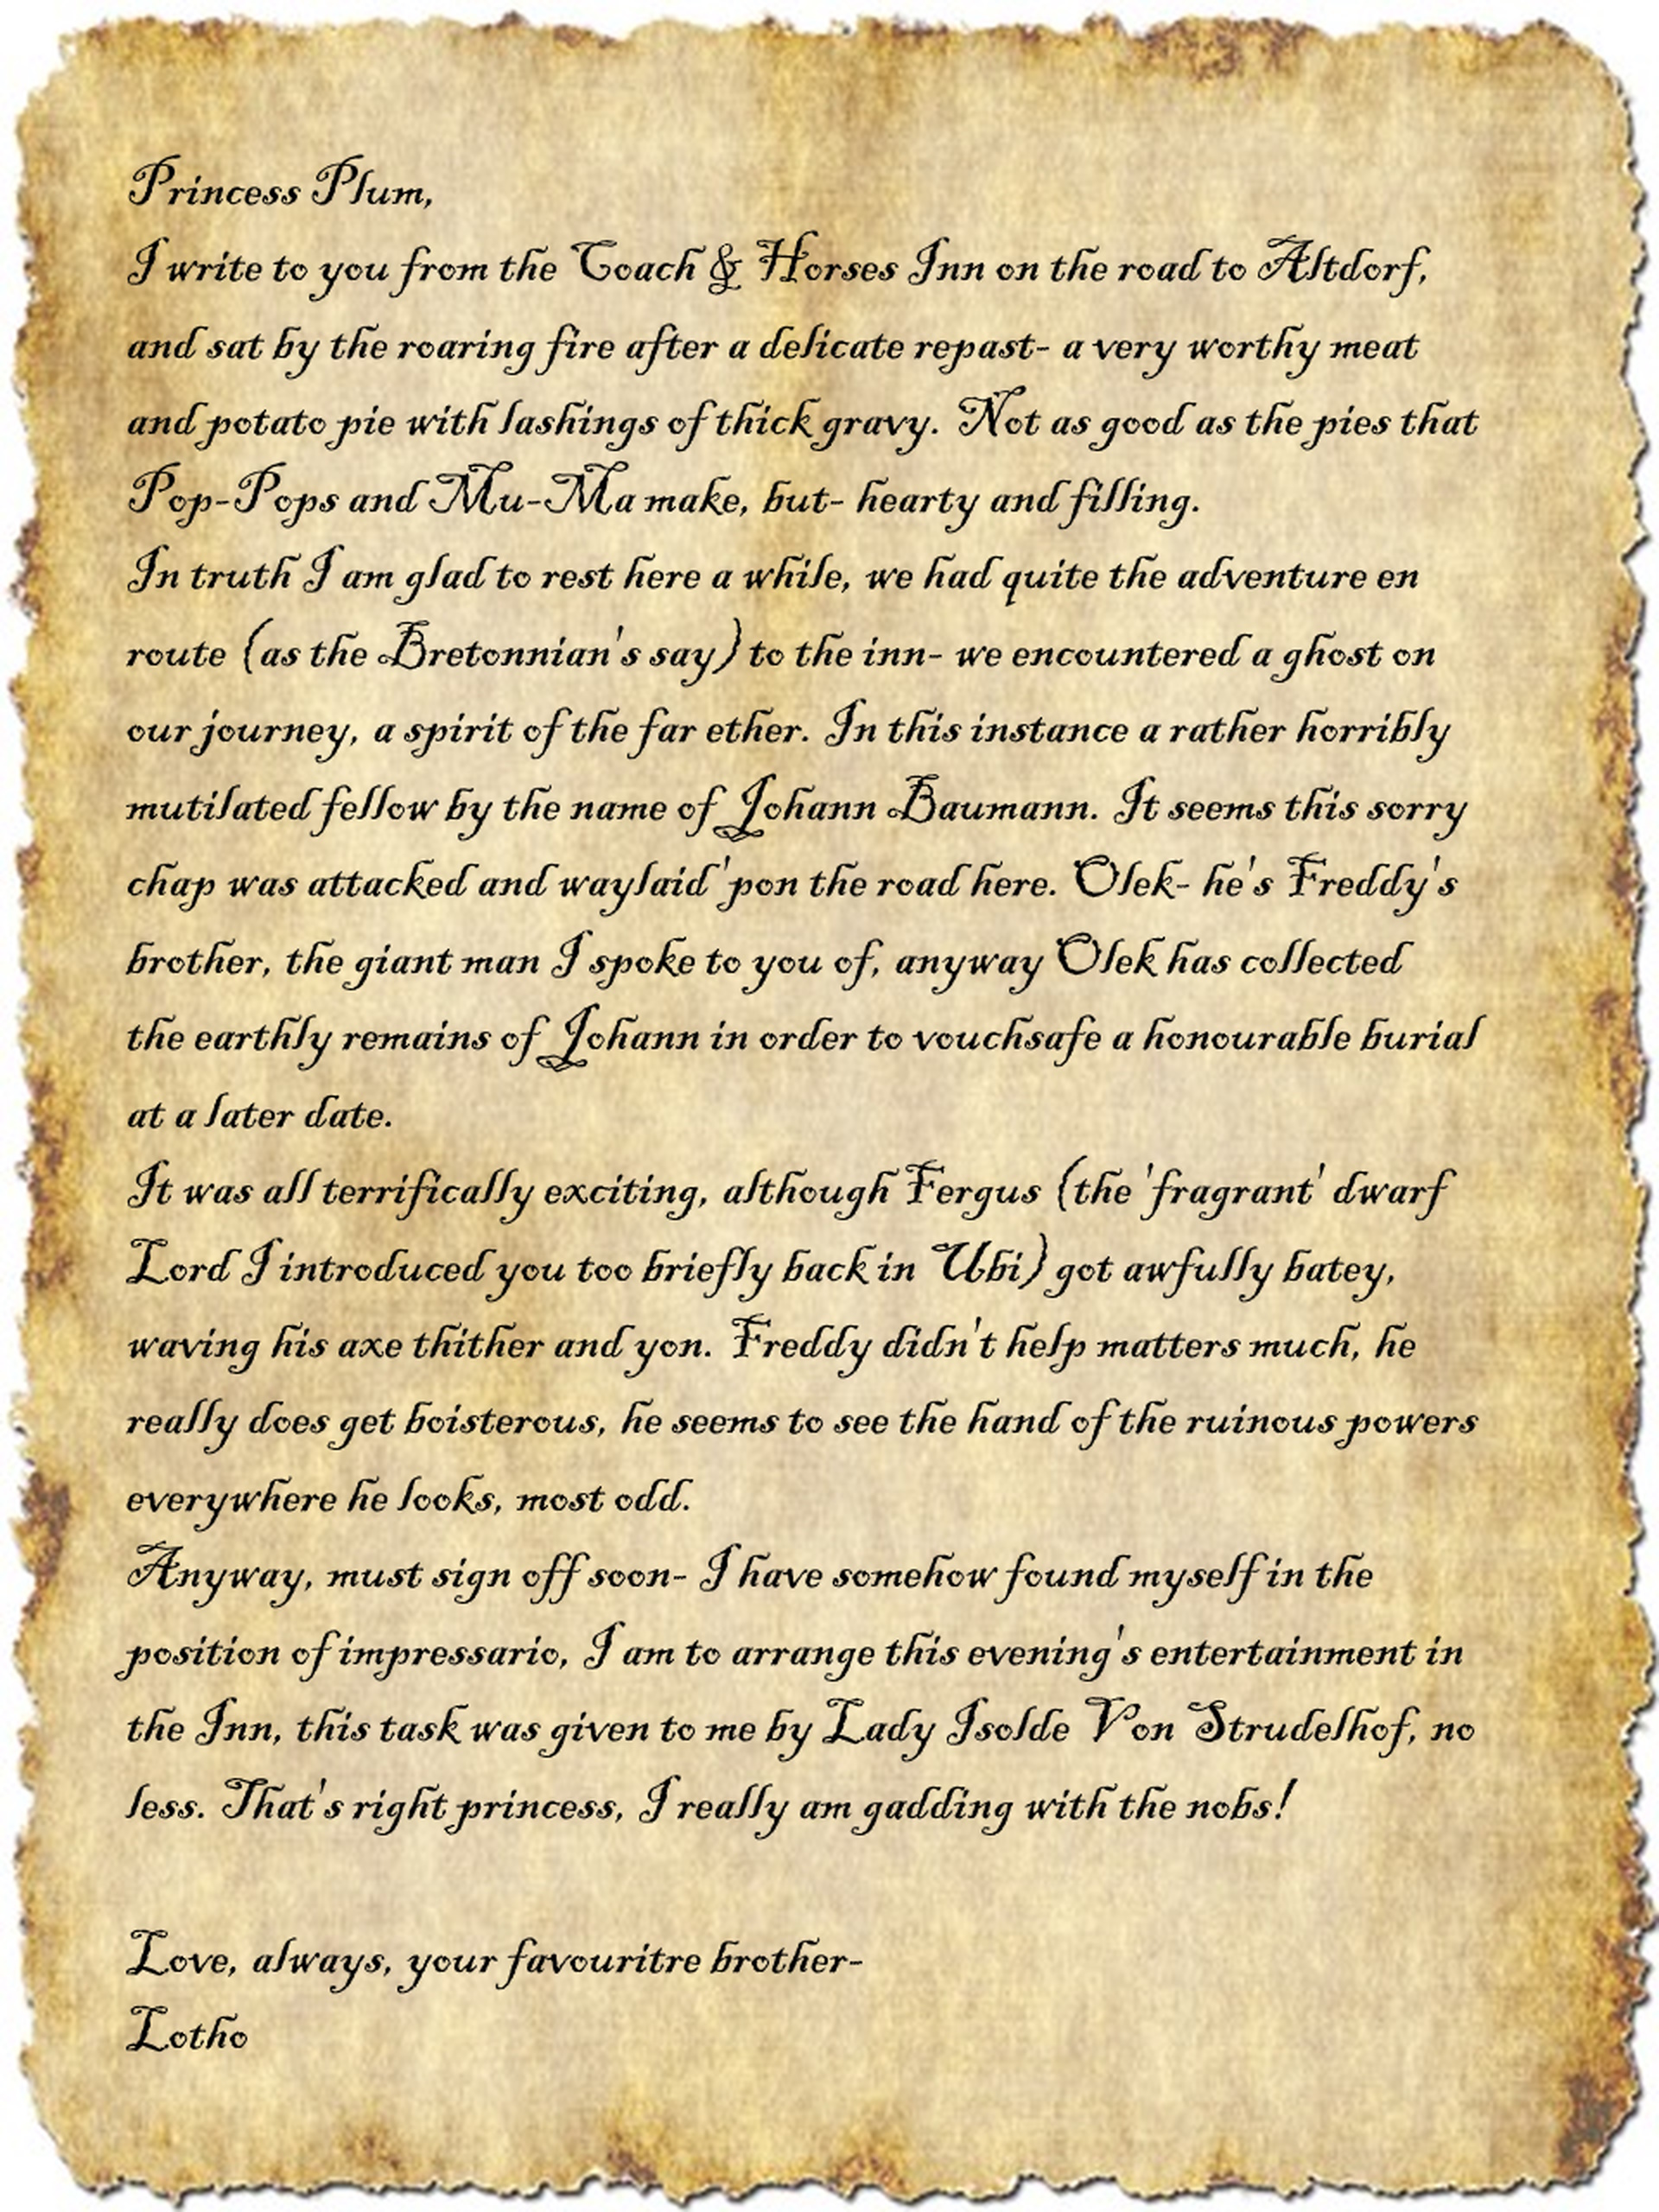 Princess Plum,
I write to you from the Coach & Horses Inn on the road to Altdorf,
and sat by the roaring fire after a delicate repast- a very worthy meat
and potato pie with lashings of thick gravy. Not as good as the pies that
Pop-Pops and Mu-Ma make, but- hearty and filling.
In truth I am glad to rest here a while, we had quite the adventure en
route (as the Bretonnian's say) to the inn- we encountered a ghost on
our journey, a spirit of the far ether. In this instance a rather horribly
mutilated fellow by the name of Johann Baumann. It seems this sorry
chap was attacked and waylaid 'pon the road here. Olek- he's Freddy's
brother, the giant man I spoke to you of, anyway Olek has collected
the earthly remains of Johann in order to vouchsafe a honourable burial
at a later date.
It was all terrifically exciting, although Fergus (the 'fragrant' dwarf
Lord I introduced you too briefly back in Ubi) got awfully batey,
waving his axe thither and yon. Freddy didn't help matters much, he
really does get boisterous, he seems to see the hand of the ruinous powers
everywhere he looks, most odd.
Anyway, must sign off soon- I have somehow found myself in the
position of impressario, I am to arrange this evening's entertainment in
the Inn, this task was given to me by Lady Isolde Von Strudelhof, no
less. That's right princess, I really am gadding with the nobs!
Love, always, your favouritre brother-
Lotho